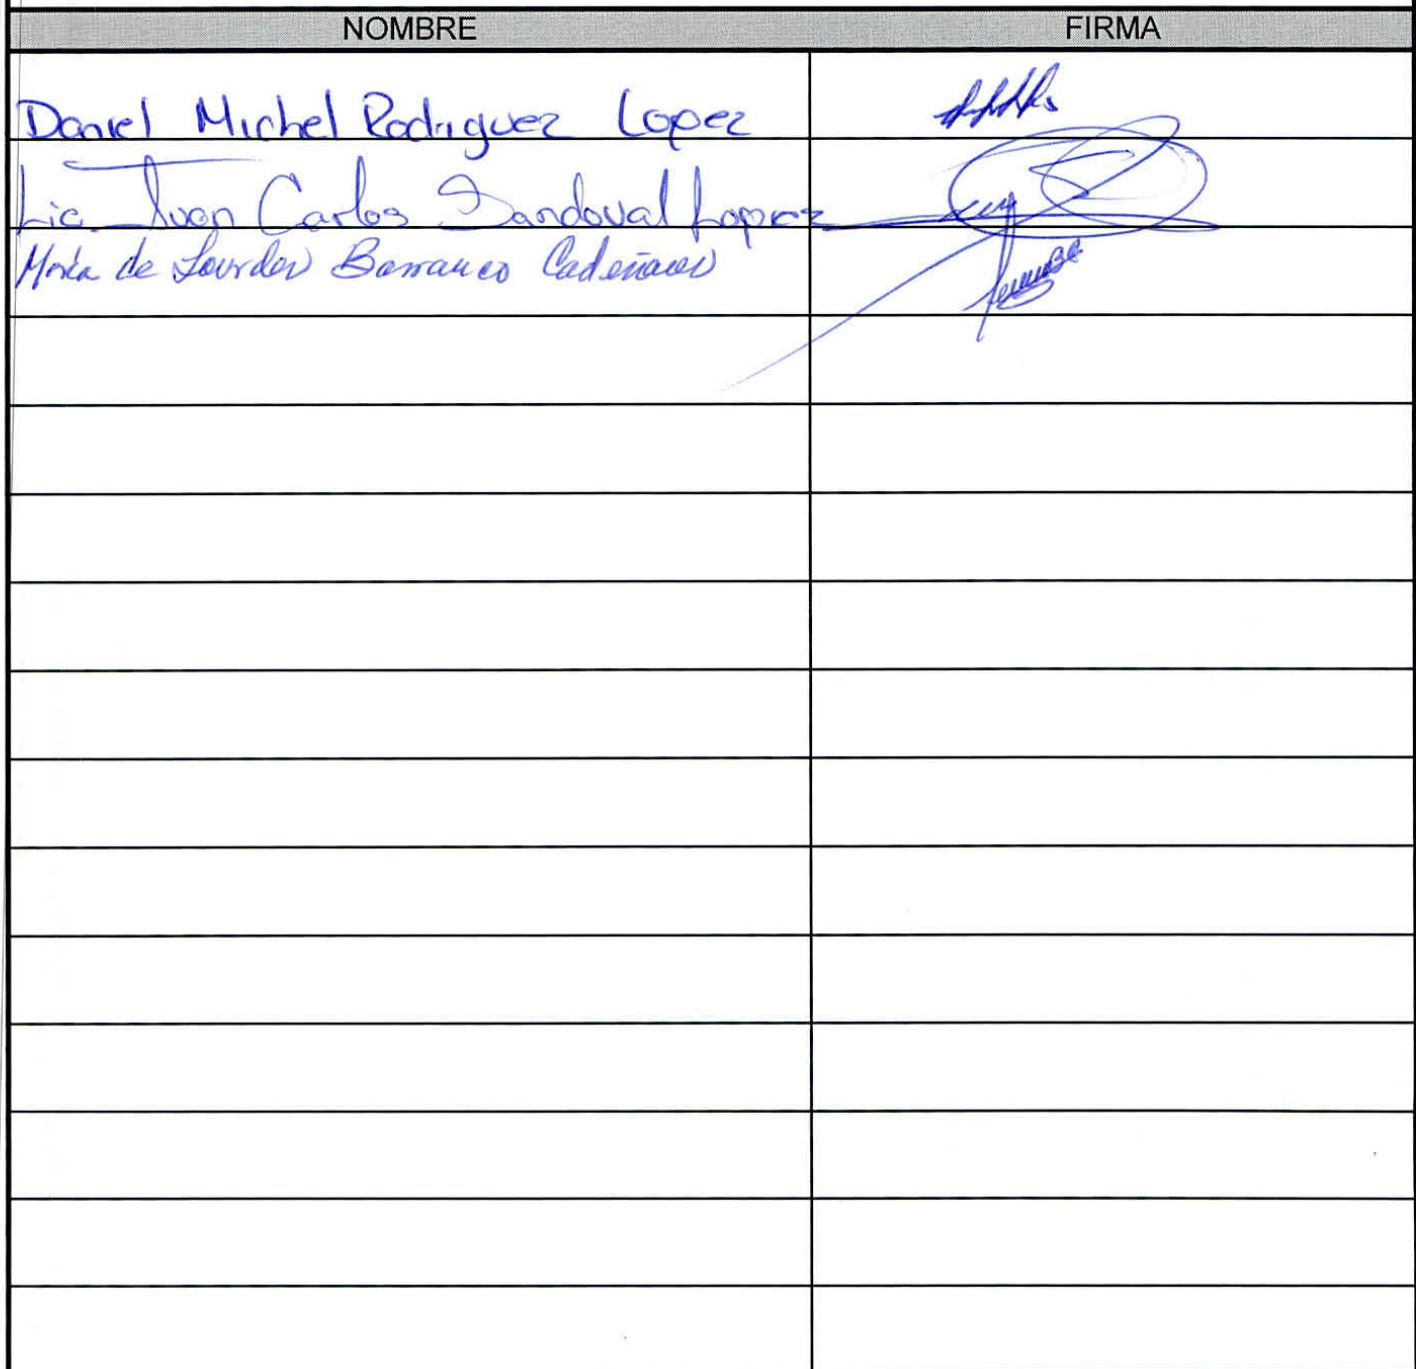 NOMBRE FIRMA
Daniel Michel Rodriguez Lopez
Lic. Juan Carlos Sandoval Lopez
María de Lourdes Barranco Cadenas